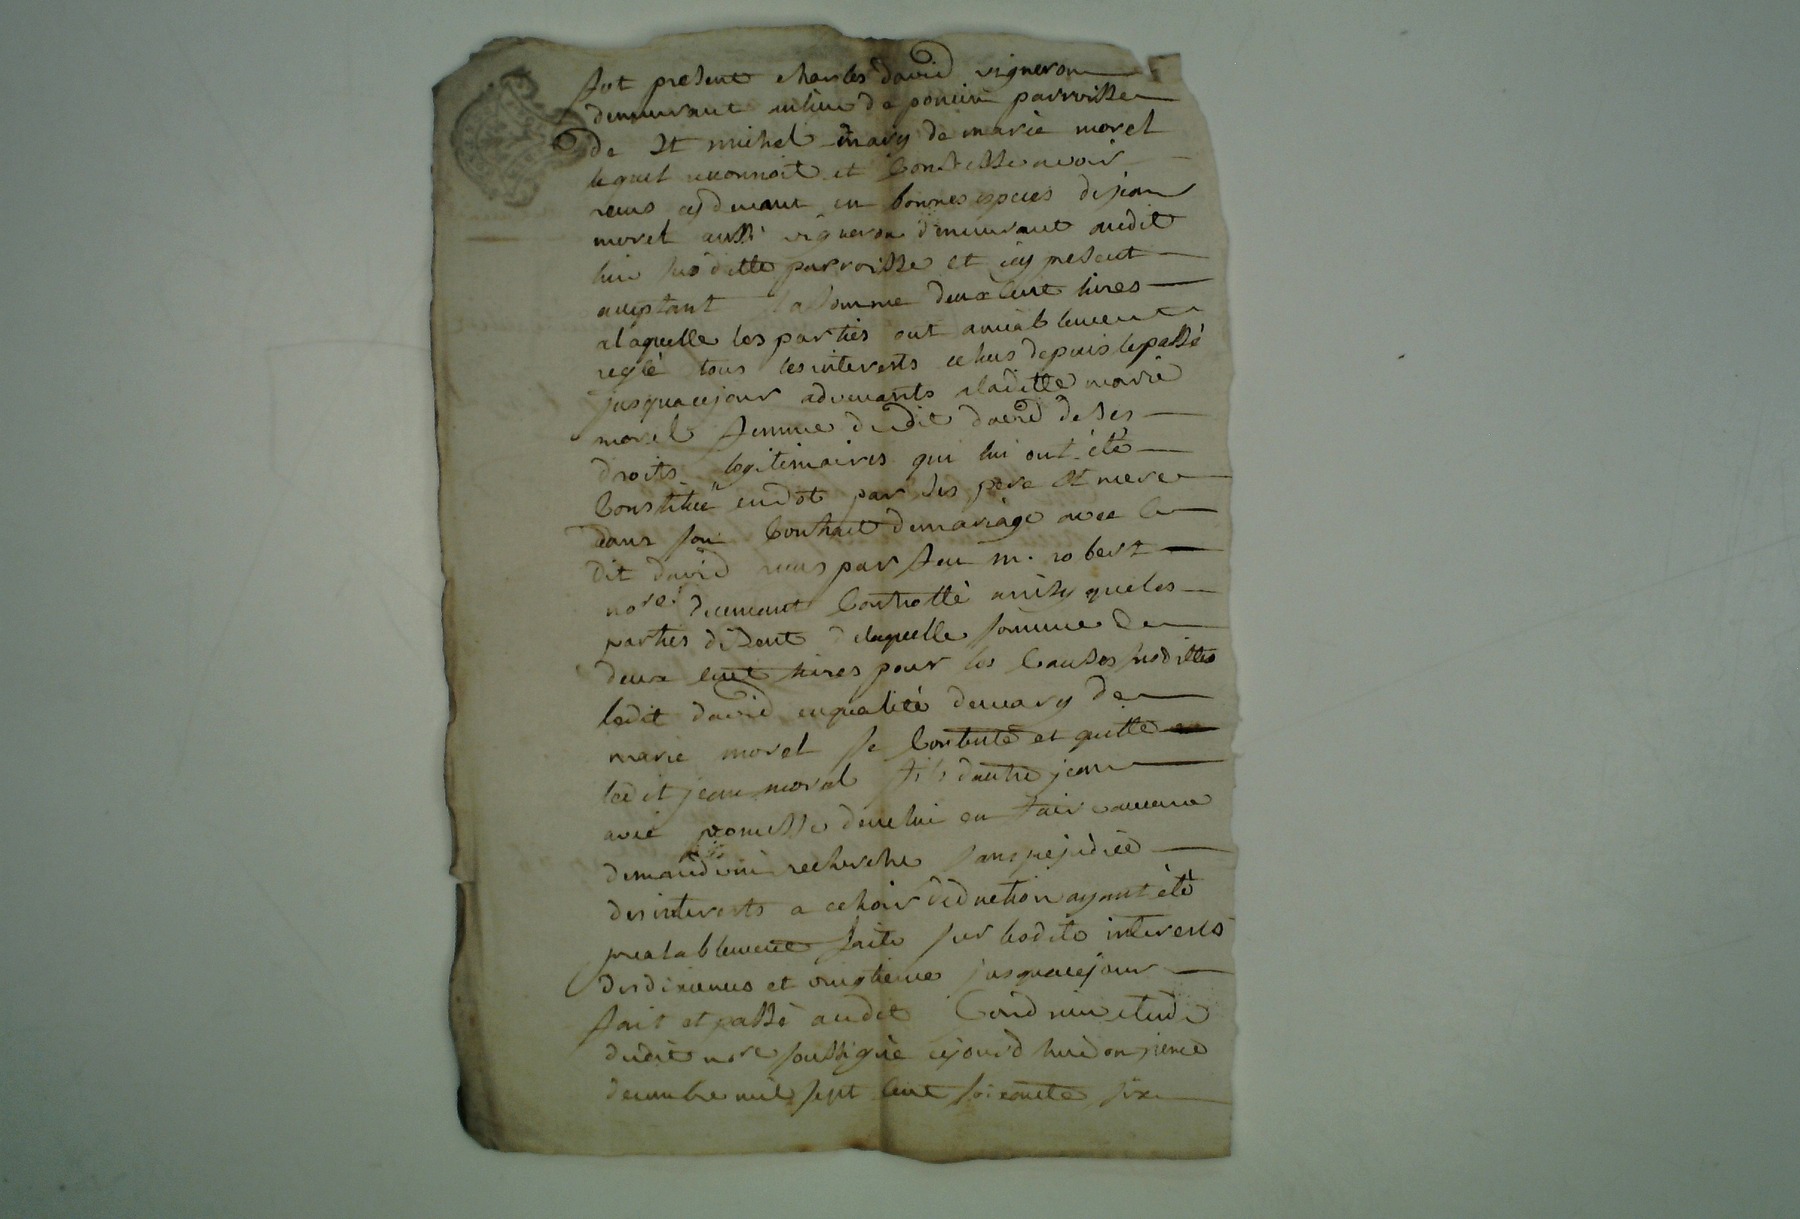 fut present charles david vigneron
demeurant au lieu de poncin parroisse
de St michel mary de marie morel
lequel reconnoit et Confesse avoir
recus cydevant en bonnes especes de jean
morel aussi vigneron demeurant audit
lieu susditte parroisse et icy present
acceptant la somme deux Cent livres
a laquelle les parties ont amiablement
reglé tous les interests echus depuis le passé
jusqua cejour advenants a laditte marie
morel femme dudit david de ses
droits legitimaires qui lui ont été
Constitué en dot par ses pere et mere
dans son Contrait de mariage avec le
dit david recus par feu m. robert
nore. deuement Controllé ainsy que les
parties disent de laquelle somme de
deux Cent livres pour les Causes susdittes
ledit david en qualité de mary de
marie morel se Contente et quitte
ledit jean morel fils dautre jean
avec promesse de ne lui en faire aucune
demande ni recherche sans prejudice
des interests a echoir deduction ayant été
prealablement faite sur lesdits interests
des dixiemes et vingtieme jusqua cejour
fait et passé audit etude
dudit nore soussigné cejourd'hui onzieme
decembre mil sept Cent soixante six